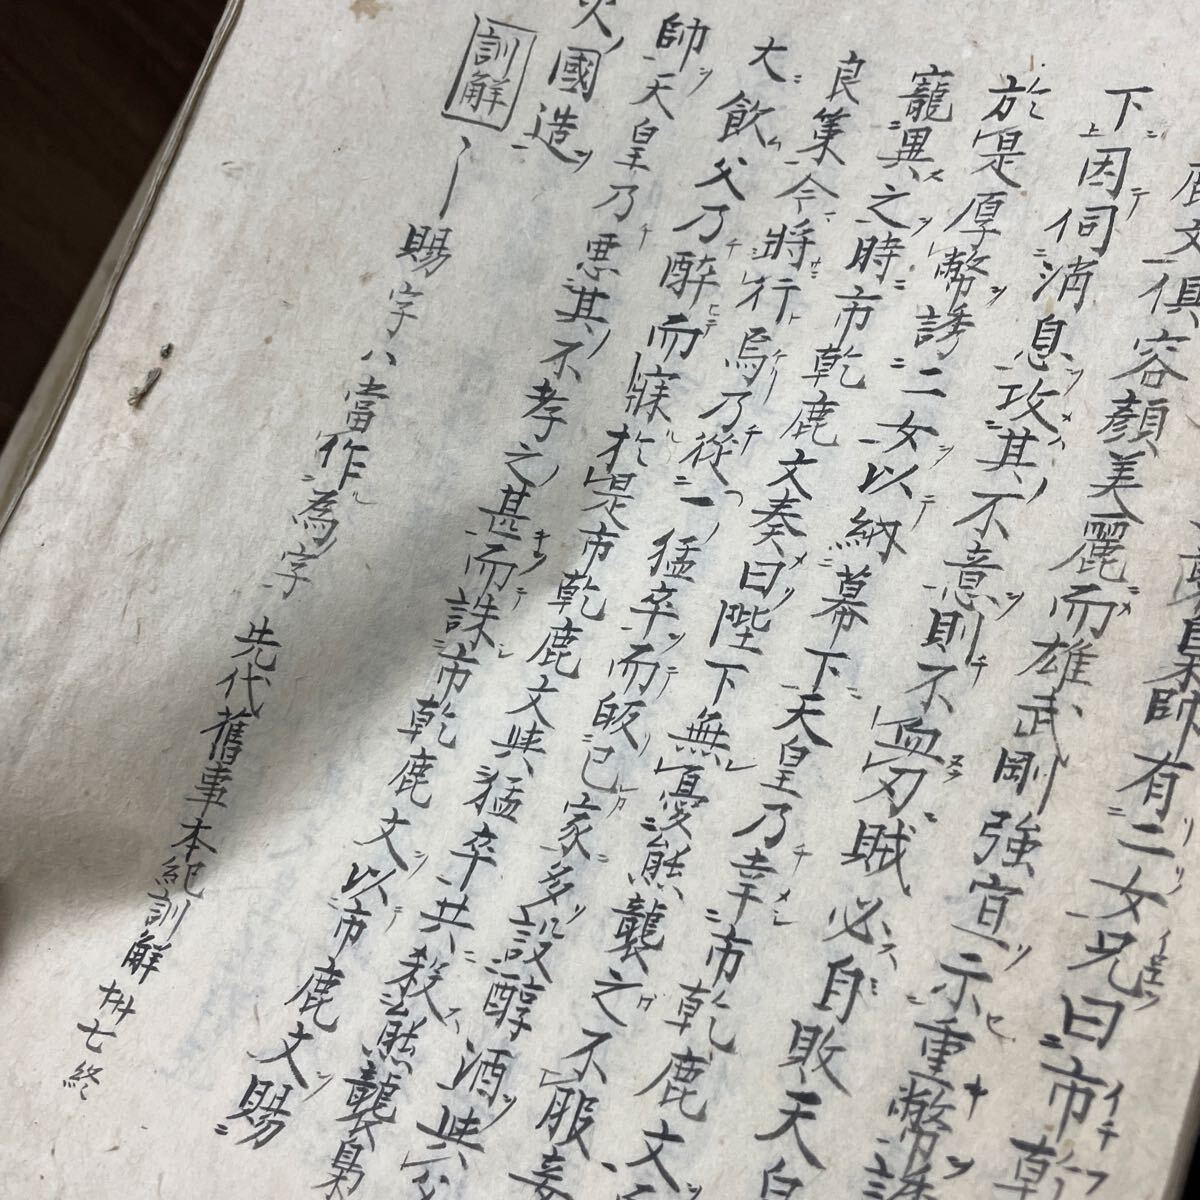 梟帥有二女兄曰市乾
鹿文俱容顏美麗而雄武剛強宜示重幣誘
下因伺消息攻其不意則不血刃賊必自敗天皇
於是厚幣誘二女以納幕下天皇乃幸市乾鹿文
寵異之時市乾鹿文奏曰陛下無憂熊襲之不服妾
良策今將行焉乃從一猛卒而皈己家多設醇酒與父
大飲父乃醉而寐於是市乾鹿文與猛卒共殺熊襲梟
帥天皇乃惡其不孝之甚而誅市乾鹿文以市鹿文賜
火國造
訓解 賜字ハ當作為字 先代舊事本紀訓解 卌七終